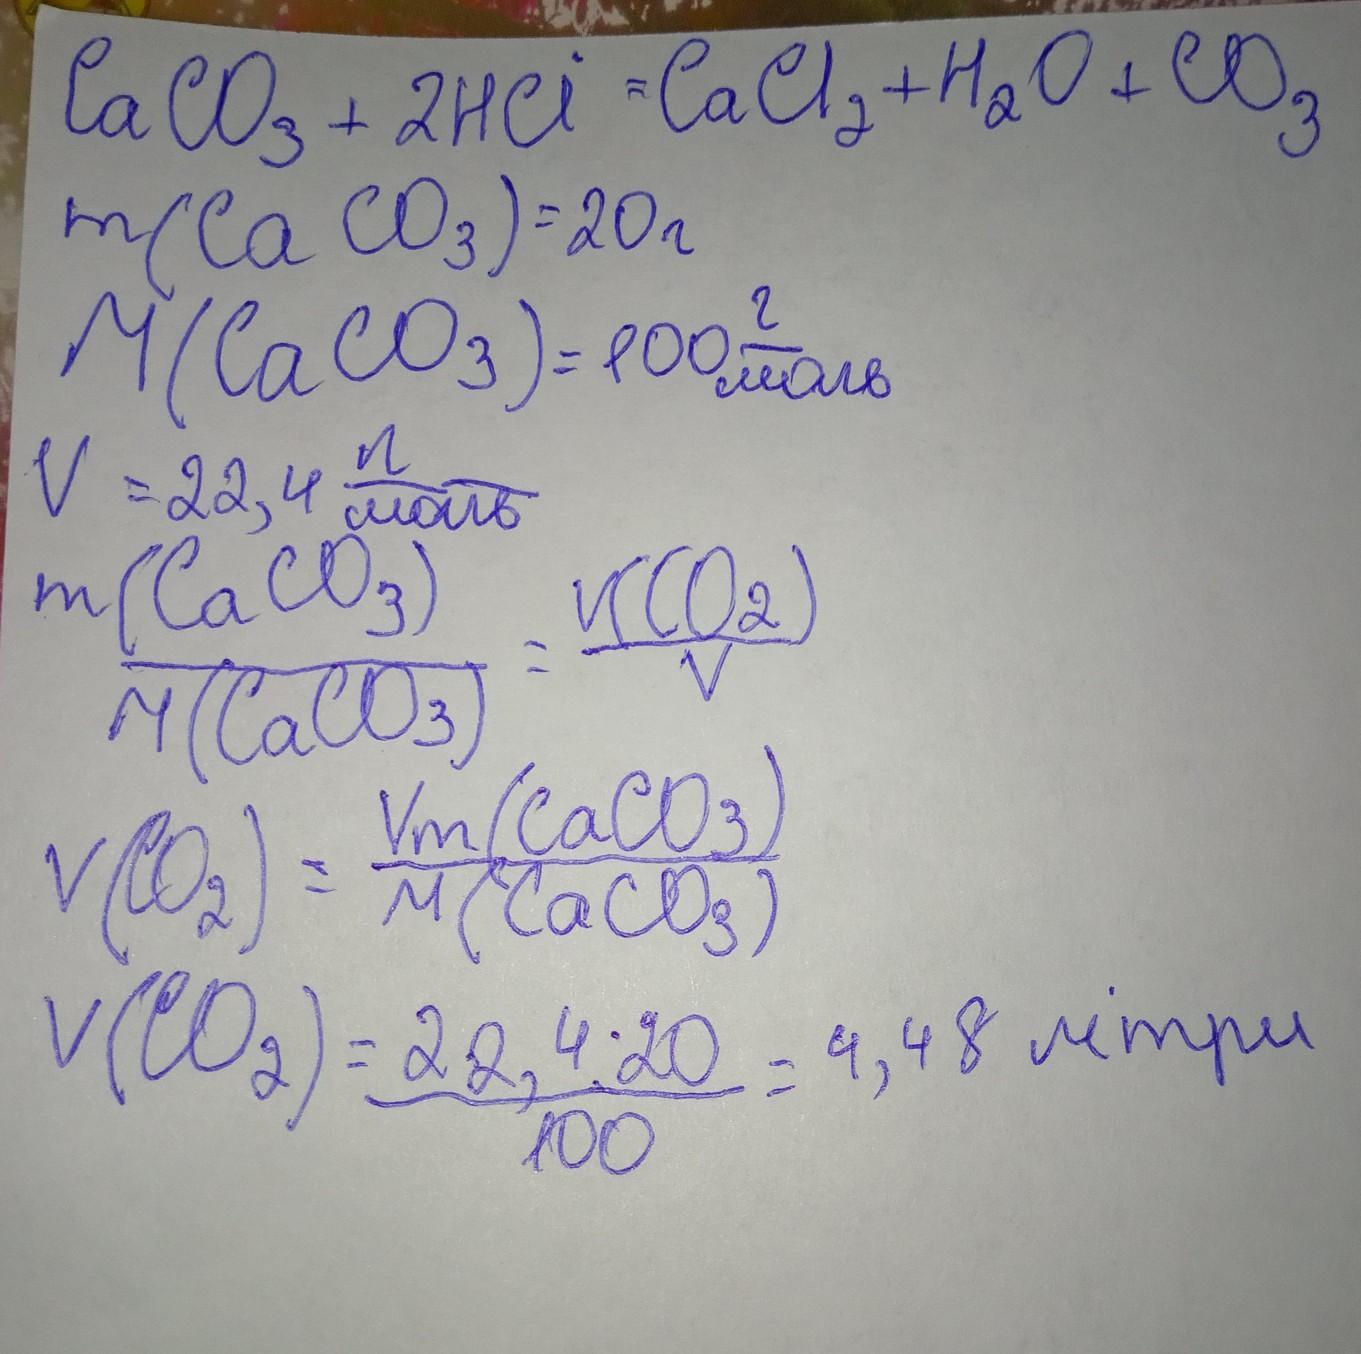 CaCO₃ + 2HCl = CaCl₂ + H₂O + CO₃
m(CaCO₃) = 20г
M(CaCO₃) = 100 г/моль
V = 22,4 л/моль
m(CaCO₃)/M(CaCO₃) = V(CO₂)/V
V(CO₂) = Vm(CaCO₃)/M(CaCO₃)
V(CO₂) = 22,4·20/100 = 4,48 літри